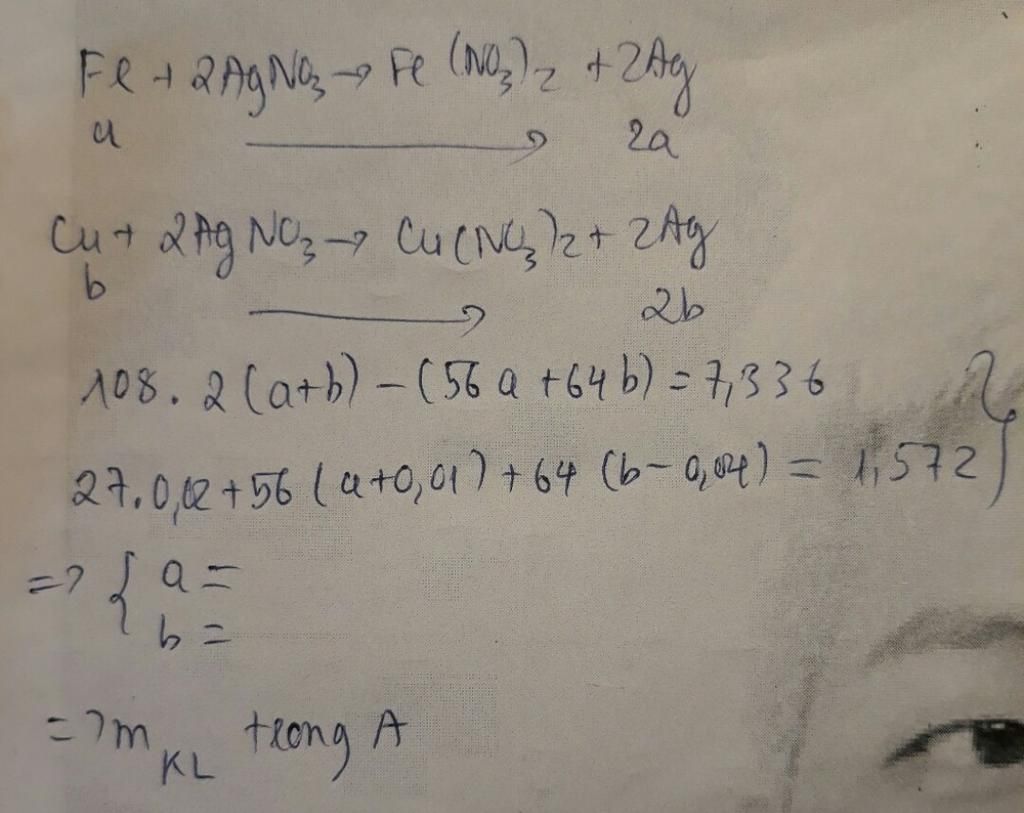 Fe + 2AgNO₃ → Fe(NO₃)₂ + 2Ag
a → 2a
Cu + 2AgNO₃ → Cu(NO₃)₂ + 2Ag
b → 2b
108.2(a+b) - (56a + 64b) = 7,336
27.0,02 + 56(a+0,01) + 64(b-0,04) = 1,572
=> { a =
b =
=> m_KL trong A